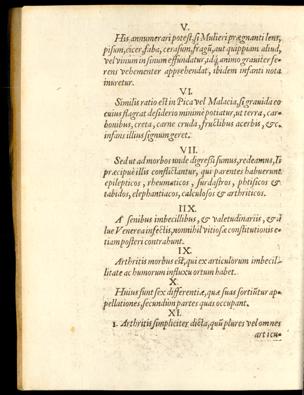 V.
His annumerari potest, si Mulieri prægnanti lens,
pisum, cicer, faba, cerasum, fragũ, aut quippiam aliud,
vel vinum in sinum effundatur, idq́; animo graviter fe-
rens vehementer apprehendat, ibidem infanti nota
inuretur.
VI.
Similis ratio est in Pica vel Malacia, si gravida eo
cuius flagrat desiderio minimè potiatur, ut terra, car-
bonibus, creta, carne cruda, fructibus acerbis, &c.
infans illius signum geret.
VII.
Sed ut ad morbos unde digressi sumus, redeamus, Ii
præcipuè illis conflictantur, qui parentes habuerunt
epilepticos, rheumaticos, surdastros, phtisicos &
tabidos, elephantiacos, calculosos & arthriticos.
IIX.
A' senibus imbecillibus, & valetudinariis, & à
lue Venerea infectis, nonnihil vitiosæ constitutionis e-
tiam posteri contrahunt.
IX.
Arthritis morbus est, qui ex articulorum imbecil-
litate ac humorum influxu ortum habet.
X.
Huius sunt sex differentiæ, quæ suas sortiũtur ap-
pellationes, secundùm partes quas occupant.
XI.
1. Arthritis simpliciter dicta, quũ plures vel omnes
articu-